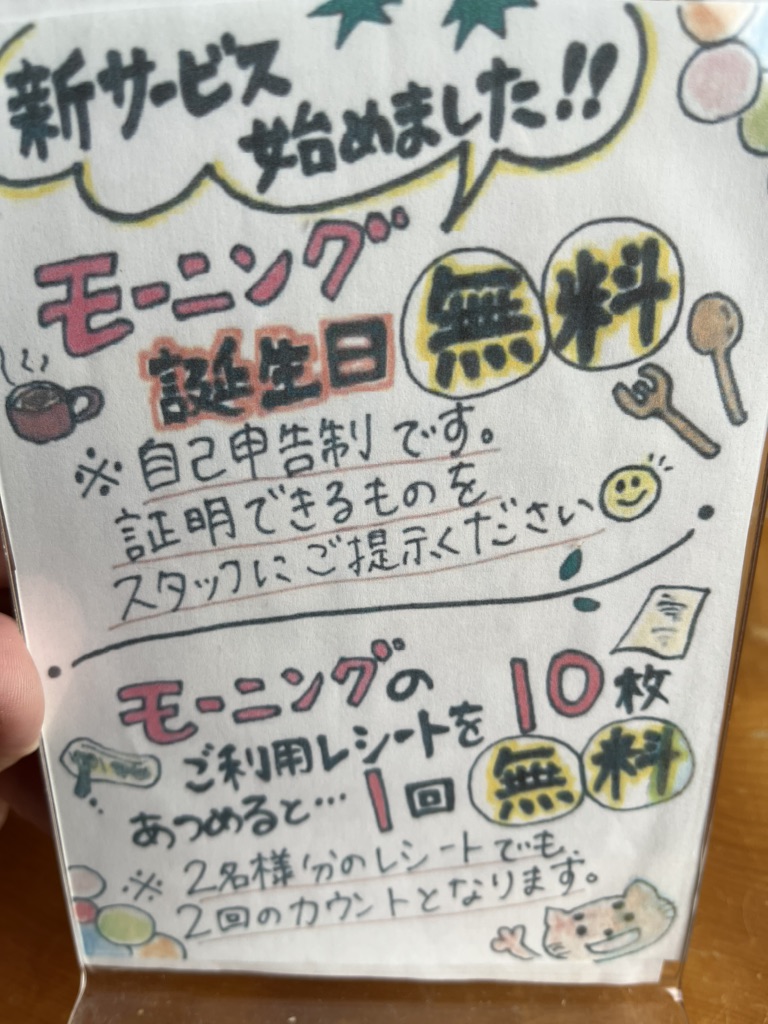 新サービス
始めました!!
モーニング
誕生日 無料
※自己申告制です。
証明できるものを
スタッフにご提示ください
モーニングの 10枚
ご利用レシートを
あつめると… 1回 無料
※2名様分のレシートでも、
2回のカウントとなります。